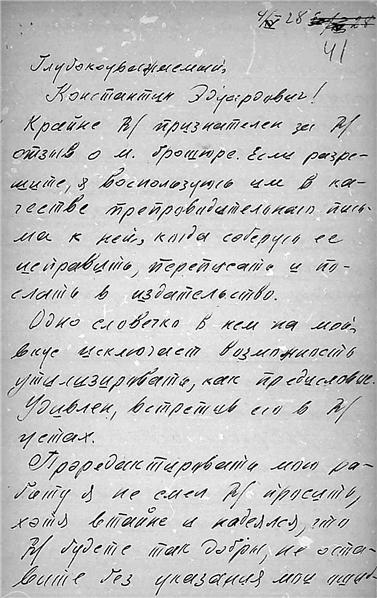 4/IV 28
41
Глубокоуважаемый,
Константин Эдуардович!
Крайне В/ признателен за В/
отзыв о м. брошюре. Если разре-
шите, я воспользуюсь им в ка-
честве препроводительного пись-
ма к ней, когда соберусь ее
исправить, переписать и по-
слать в издательство.
Одно словечко в нем на мой,
вкус исключает возможность
утилизировать, как предисловие.
Удивлен, встретив его в В/
устах.
Проредактировать мою ра-
боту я не смел В/ просить,
хотя втайне и надеялся, что
В/ будете так добры, не оста-
вите без указания мои ошиб-